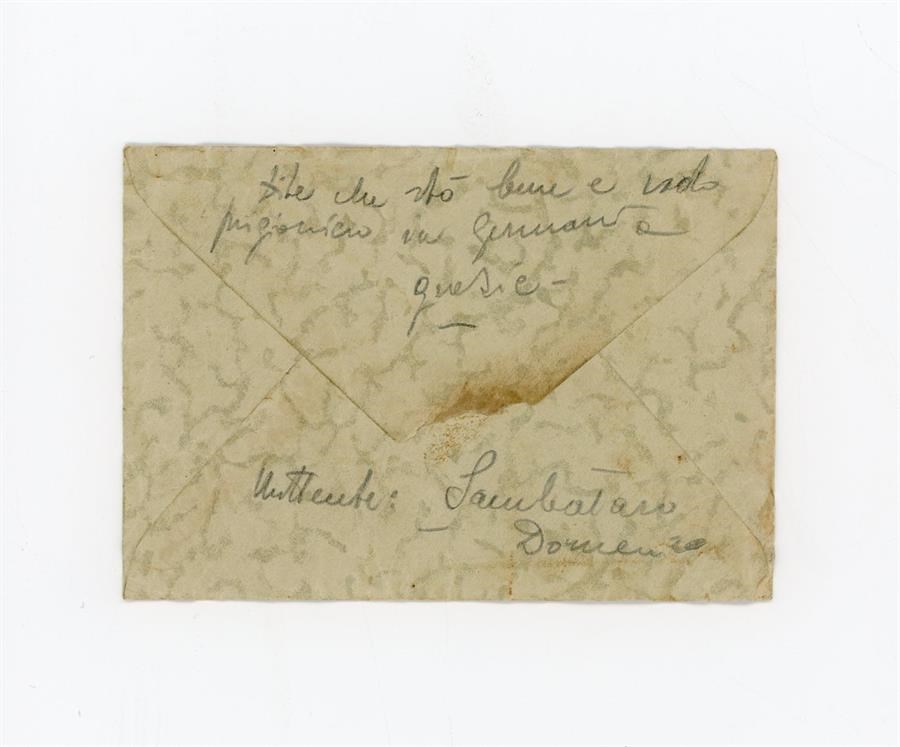 dite che stò bene e vado
prigioniero in Germania
grazie -
Mittente: Sambataro
Domenico